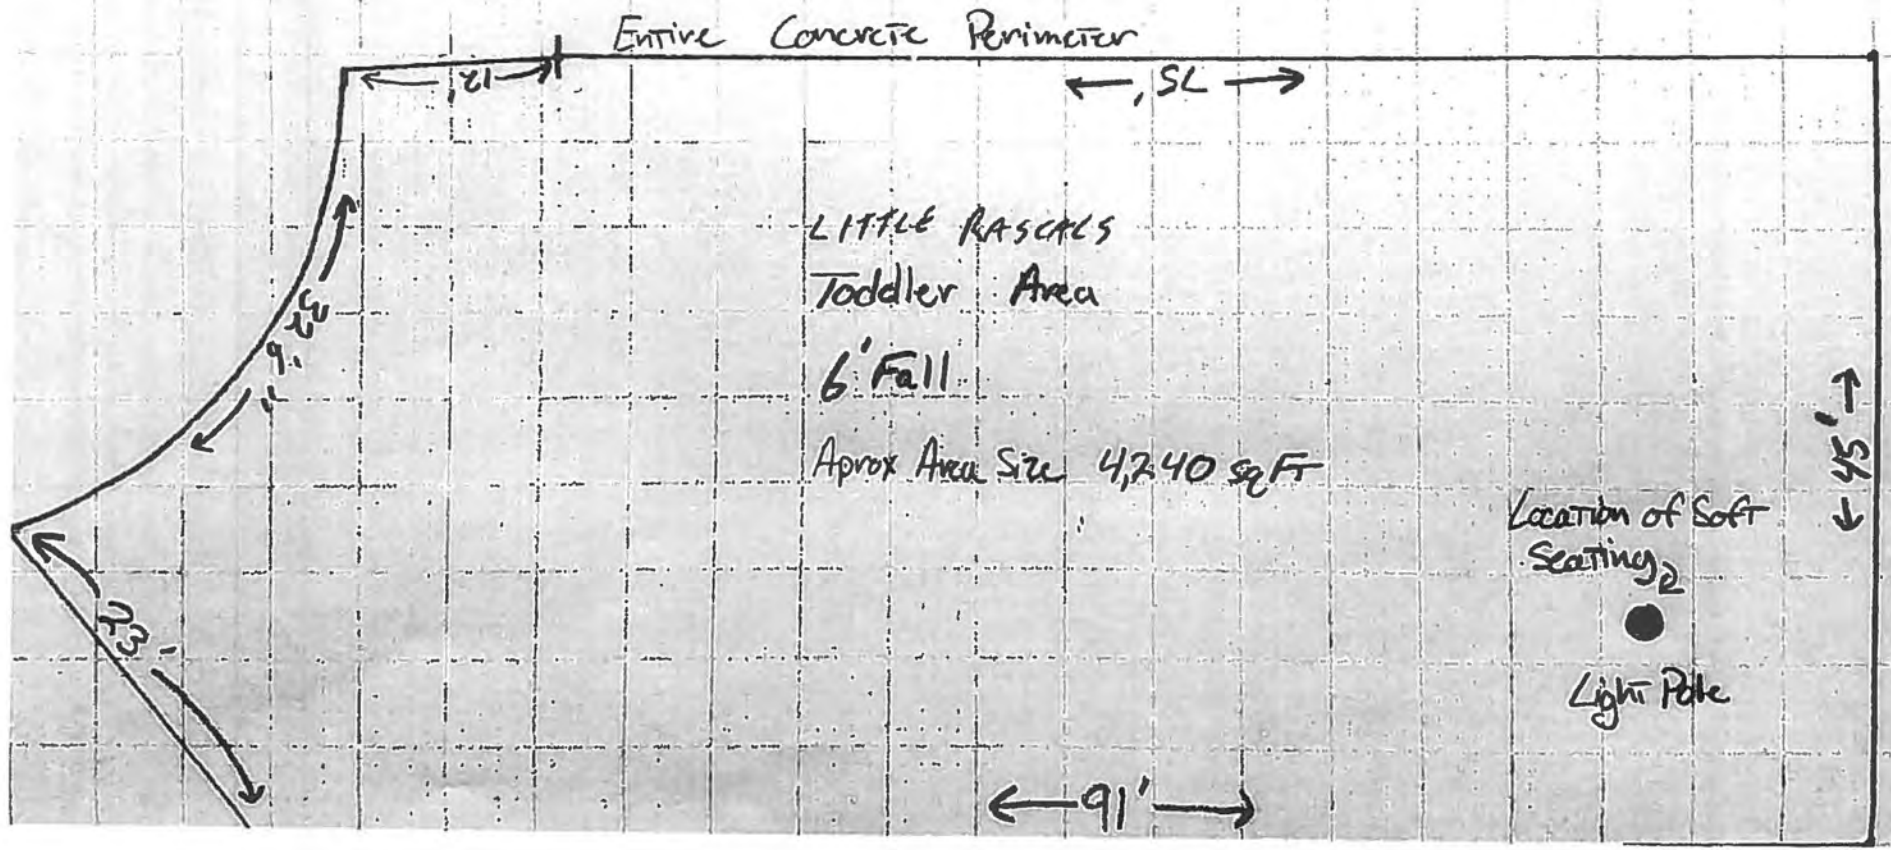 Entire Concrete Perimeter
12'
75'
32' 9"
LITTLE RASCALS
Toddler Area
6' Fall
Aprox Area Size 4,240 sq FT
45'
Location of Soft
Seating
Light Pole
23'
91'